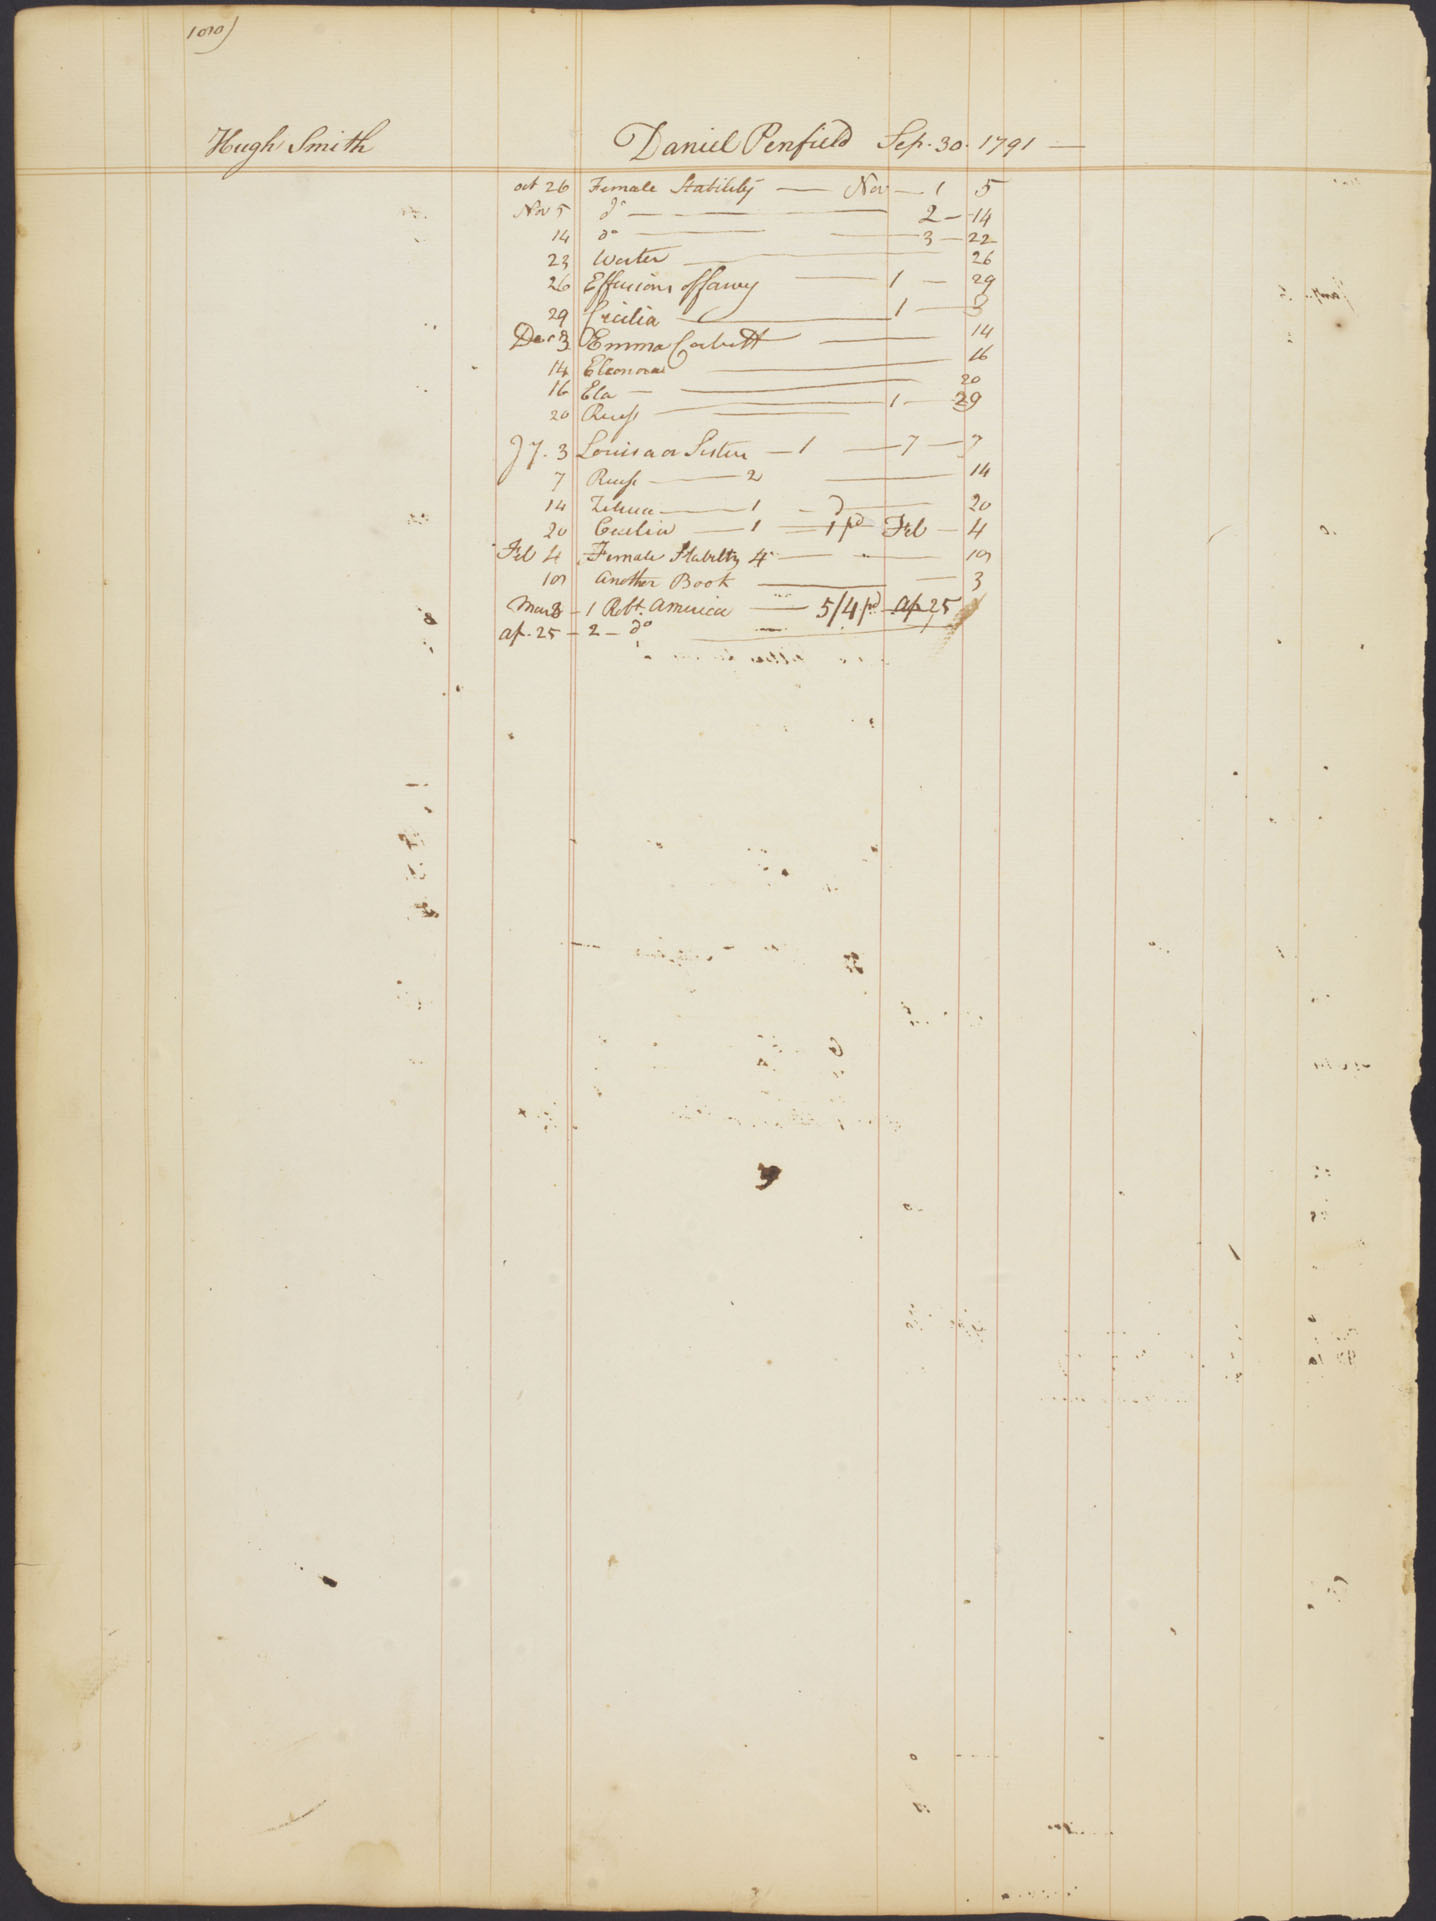 100)
Hugh Smith Daniel Penfield Sep. 30. 1791 —
oct 26 Female Stability — Nov — 1 5
Nov 5 do — 2 — 14
14 do — 3 — 22
23 Werter — 26
26 Effusions of fancy — 1 — 29
29 Cicilia — 1 — 3
Decr 3 Emma Corbett — 14
14 Eleonora — 16
16 Ela — 20
20 Recess — 1 — 29
Jy. 3 Louisa or Sister — 1 — 7 — 7
7 Recess — 2 — 14
14 Zeluca — 1 — 20
20 Cecilia — 1 — 1 pd Feb — 4
Feb 4 Female Stability 4 — 10
10 Another Book — 3
Mar 3 — 1 Robt. America — 5/4 pd ap 25
ap. 25 — 2 — do